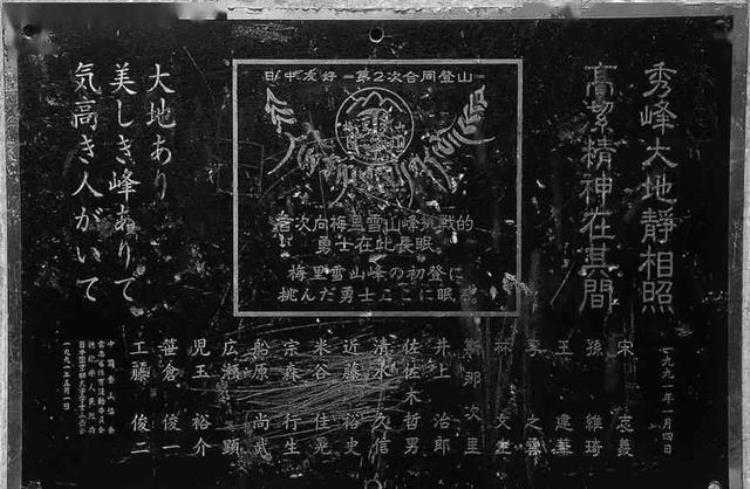 秀峰大地靜相照
高潔精神在其間
日中友好 第2次合同登山
首次向梅里雪山峰挑戦的
勇士在此長眠
梅里雪山峰の初登に
挑んだ勇士ここに眠
大地あり
美しき峰ありて
気高き人がいて
一九九一年一月四日
宋 志義
孫 維琦
王 建華
李 之雲
林 文生
那 次里
井上 治郎
佐佐木 哲男
清水 久信
近藤 裕史
米谷 佳晃
宗森 行生
船原 尚武
広瀬 顕
児玉 裕介
笹倉 俊一
工藤 俊二